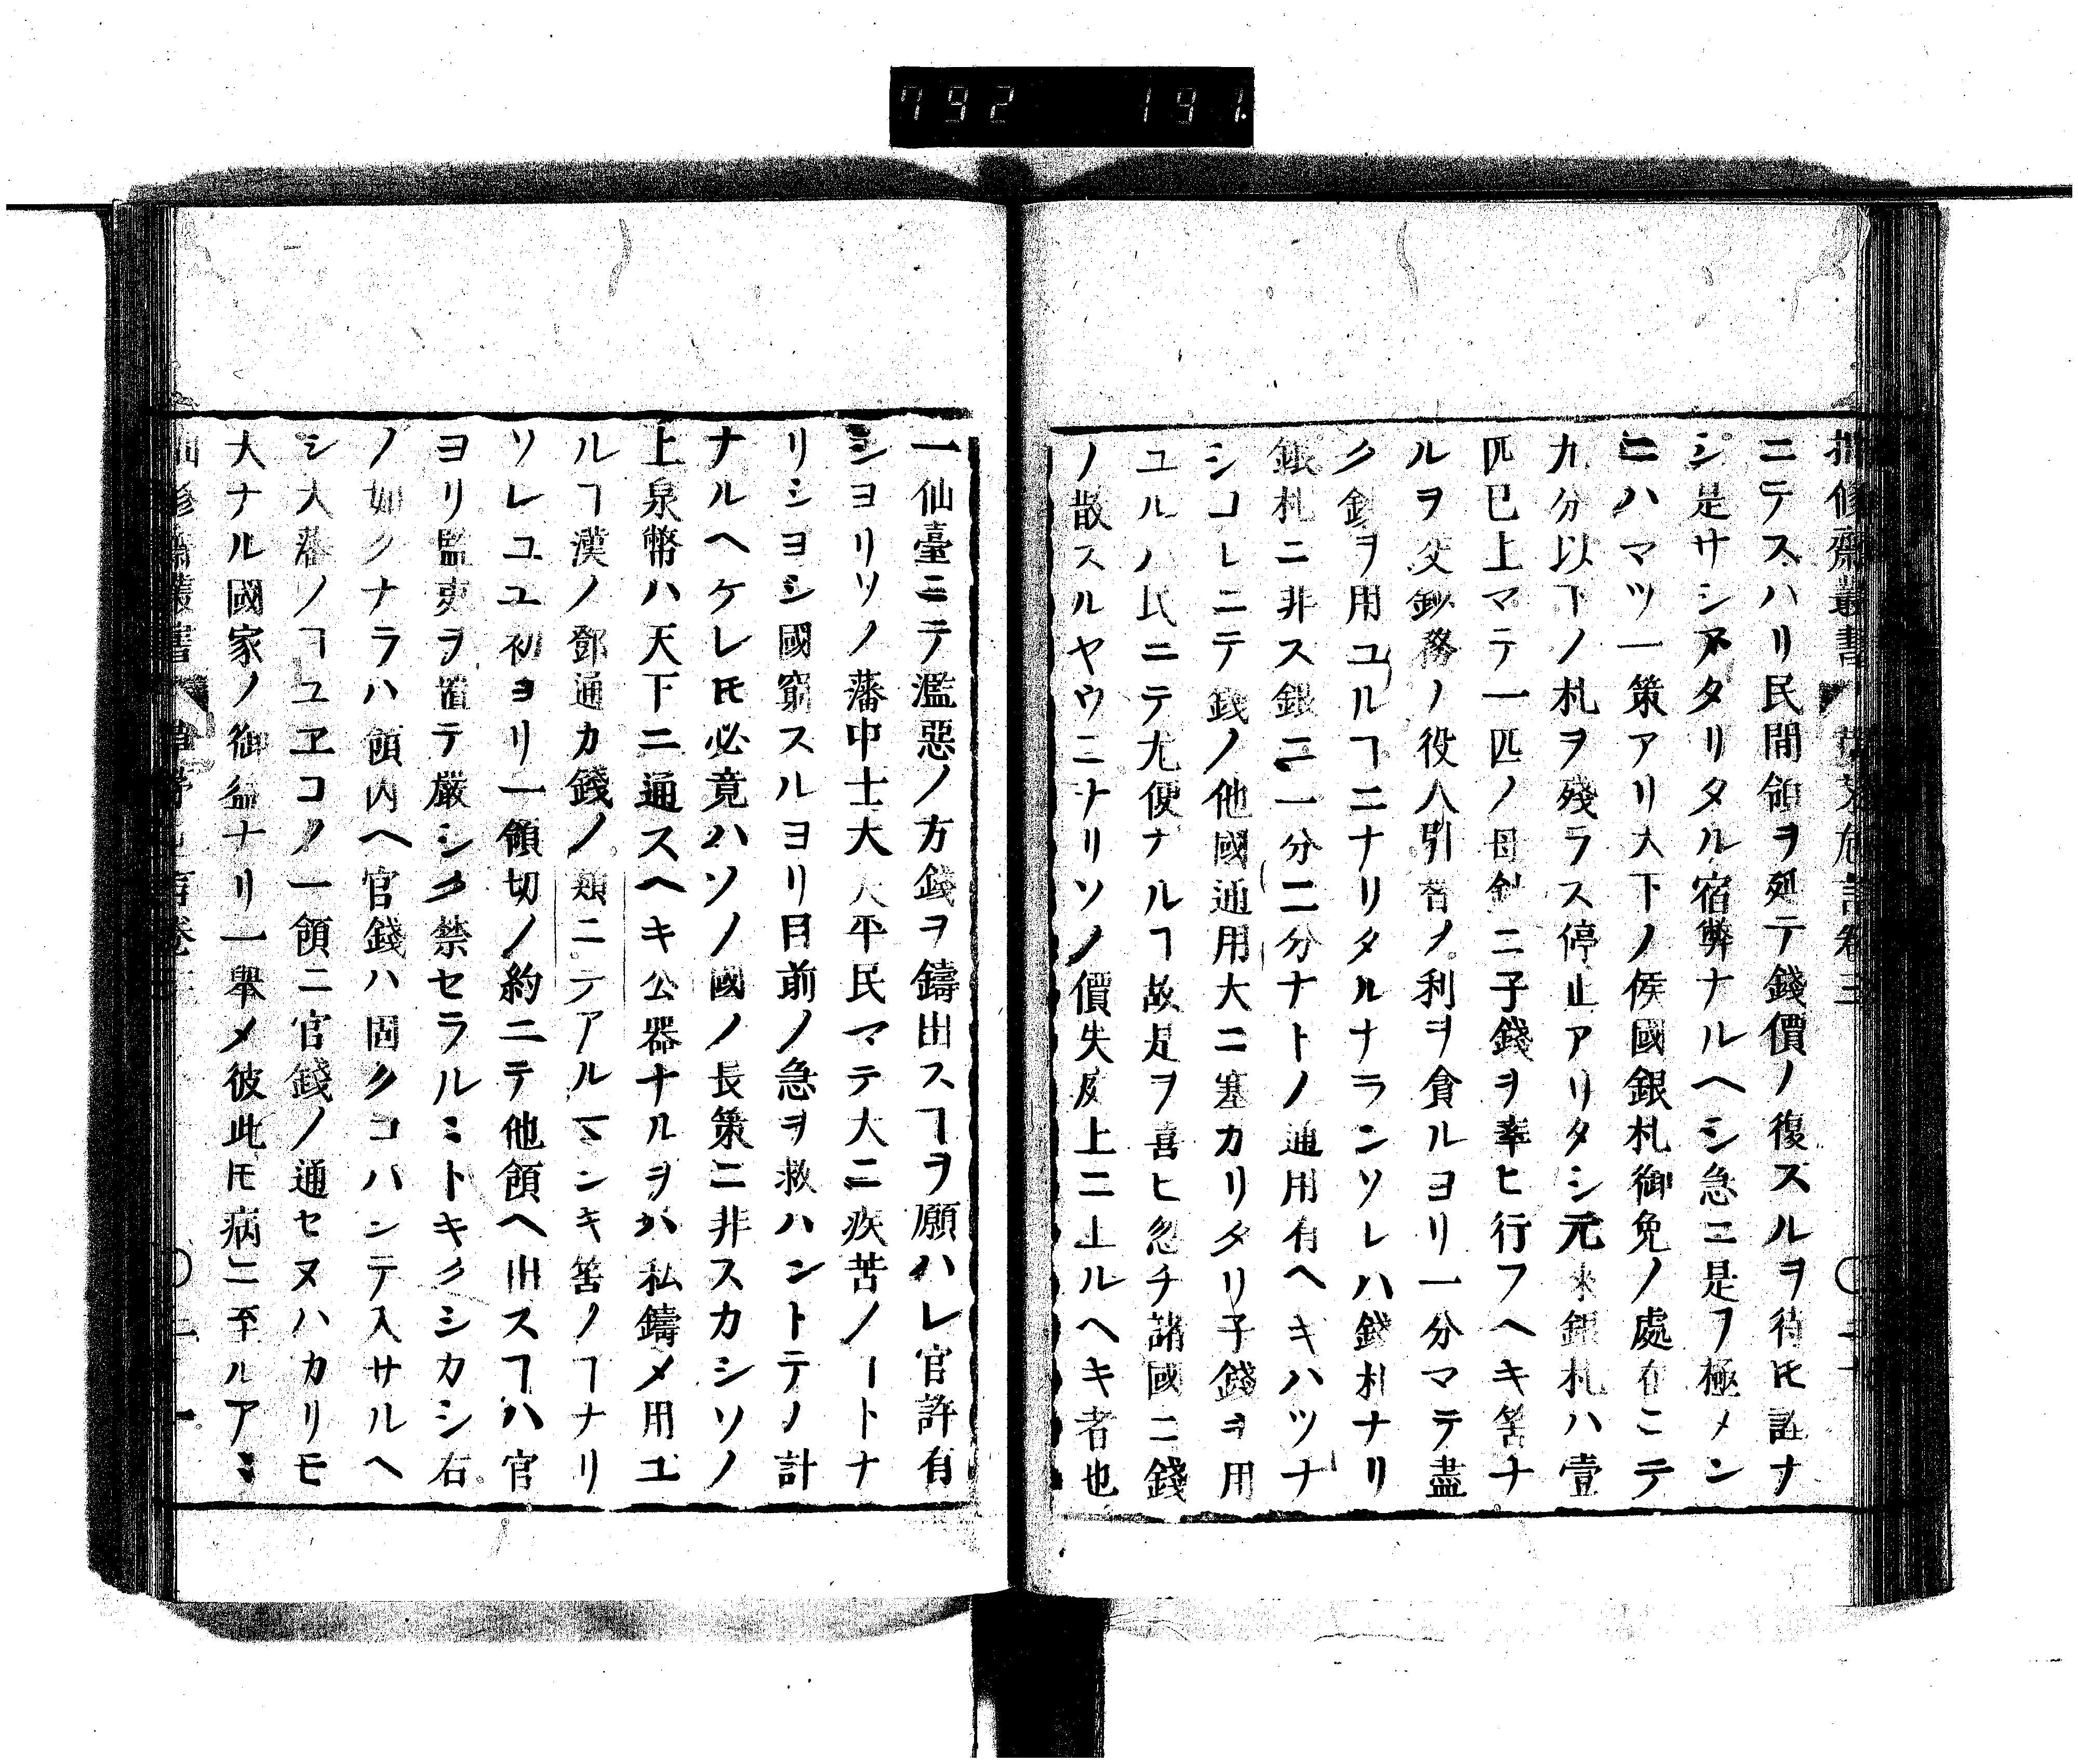 792 191
ニテスハリ民間領ヲ延テ錢價ノ復スルヲ待𪜈詮ナ
シ是サシアタリタル宿弊ナルヘシ急ニ是ヲ極メン
ニハマツ一策アリ大下ノ侯國銀札御免ノ處在ニテ
九分以下ノ札ヲ殘ラス停止アリタシ元來銀札ハ壹
匹已上マテ一匹ノ母鈔ニ子錢ヲ奉ヒ行フヘキ筈ナ
ルヲ交鈔務ノ役人引替ノ利ヲ貪ルヨリ一分マテ盡
ク鈔ヲ用ユルヿニナリタルナランソレハ錢札ナリ
銀札ニ非ス銀ニ一分二分ナトノ通用有ヘキハツナ
シコレニテ錢ノ他國通用大ニ塞カリタリ子錢ヲ用
ユルハ民ニテ尤便ナルヿ故是ヲ喜ヒ忽チ諸國ニ錢
ノ散スルヤウニナリソノ價失反上ニ止ルヘキ者也
一仙臺ニテ濫惡ノ方錢ヲ鑄出スヿヲ願ハレ官許有
シヨリソノ藩中士大夫平民マテ大ニ疾苦ノートナ
リシヨシ國窮スルヨリ目前ノ急ヲ救ハントテノ計
ナルヘケレ𪜈必竟ハソノ國ノ長策ニ非スカシソノ
上泉幣ハ天下ニ通スヘキ公器ナルヲハ私鑄メ用ユ
ルヿ漢ノ鄧通カ錢ノ類ニテアルマシキ筈ノヿナリ
ソレユユ初ヨリ一領切ノ約ニテ他領ヘ出スヿハ官
ヨリ監吏ヲ置テ嚴シク禁セラルヽトキクシカシ右
ノ如クナラハ領内ヘ官錢ハ固クコハンテ入サルヘ
シ大藩ノヿユヱコノ一領ニ官錢ノ通セヌハカリモ
大ナル國家ノ御益ナリ一舉メ彼此𪜈病ニ至ルアヽ